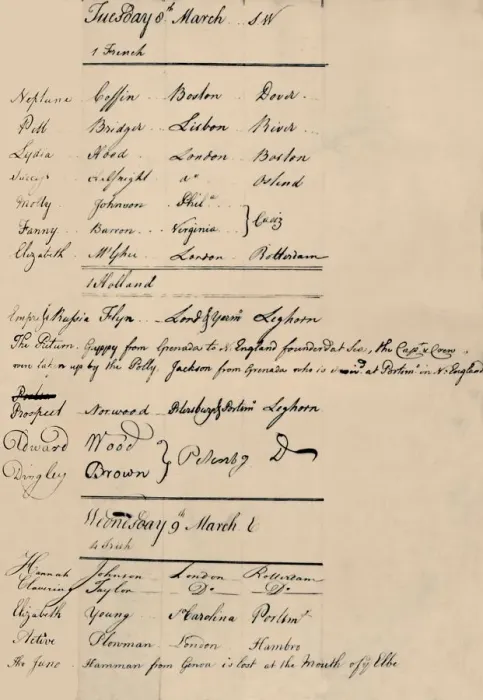 Tuesday 8th March SW
1 French
Neptune Coffin Boston Dover
Pitt Bridger Lisbon River
Lydia Hood London Boston
Do Ostend
Molly Johnson Phila
Fanny Barron Virginia } Cadiz
Elizabeth London Rotterdam
1 Holland
Emprs Russia Flyn Lond & Yarmo Leghorn
The Return Guppy from Grenada to N. England founderd at Sea, the Capt & Crew
were taken up by the Polly Jackson from Grenada who is arrivd at Portsmo in N. England
Prospect Norwood Petersburg & Portsmo Leghorn
Edward Wood
Dingley Brown } Petersbg Do
Wednesday 9th March E
4 Irish
Hannah Johnson London Rotterdam
Clavering Taylor Do Do
Elizabeth Young So Carolina Portsmo
Active Plowman London Hambro
The Juno Hamman from Genoa is lost at the Mouth of ye Elbe